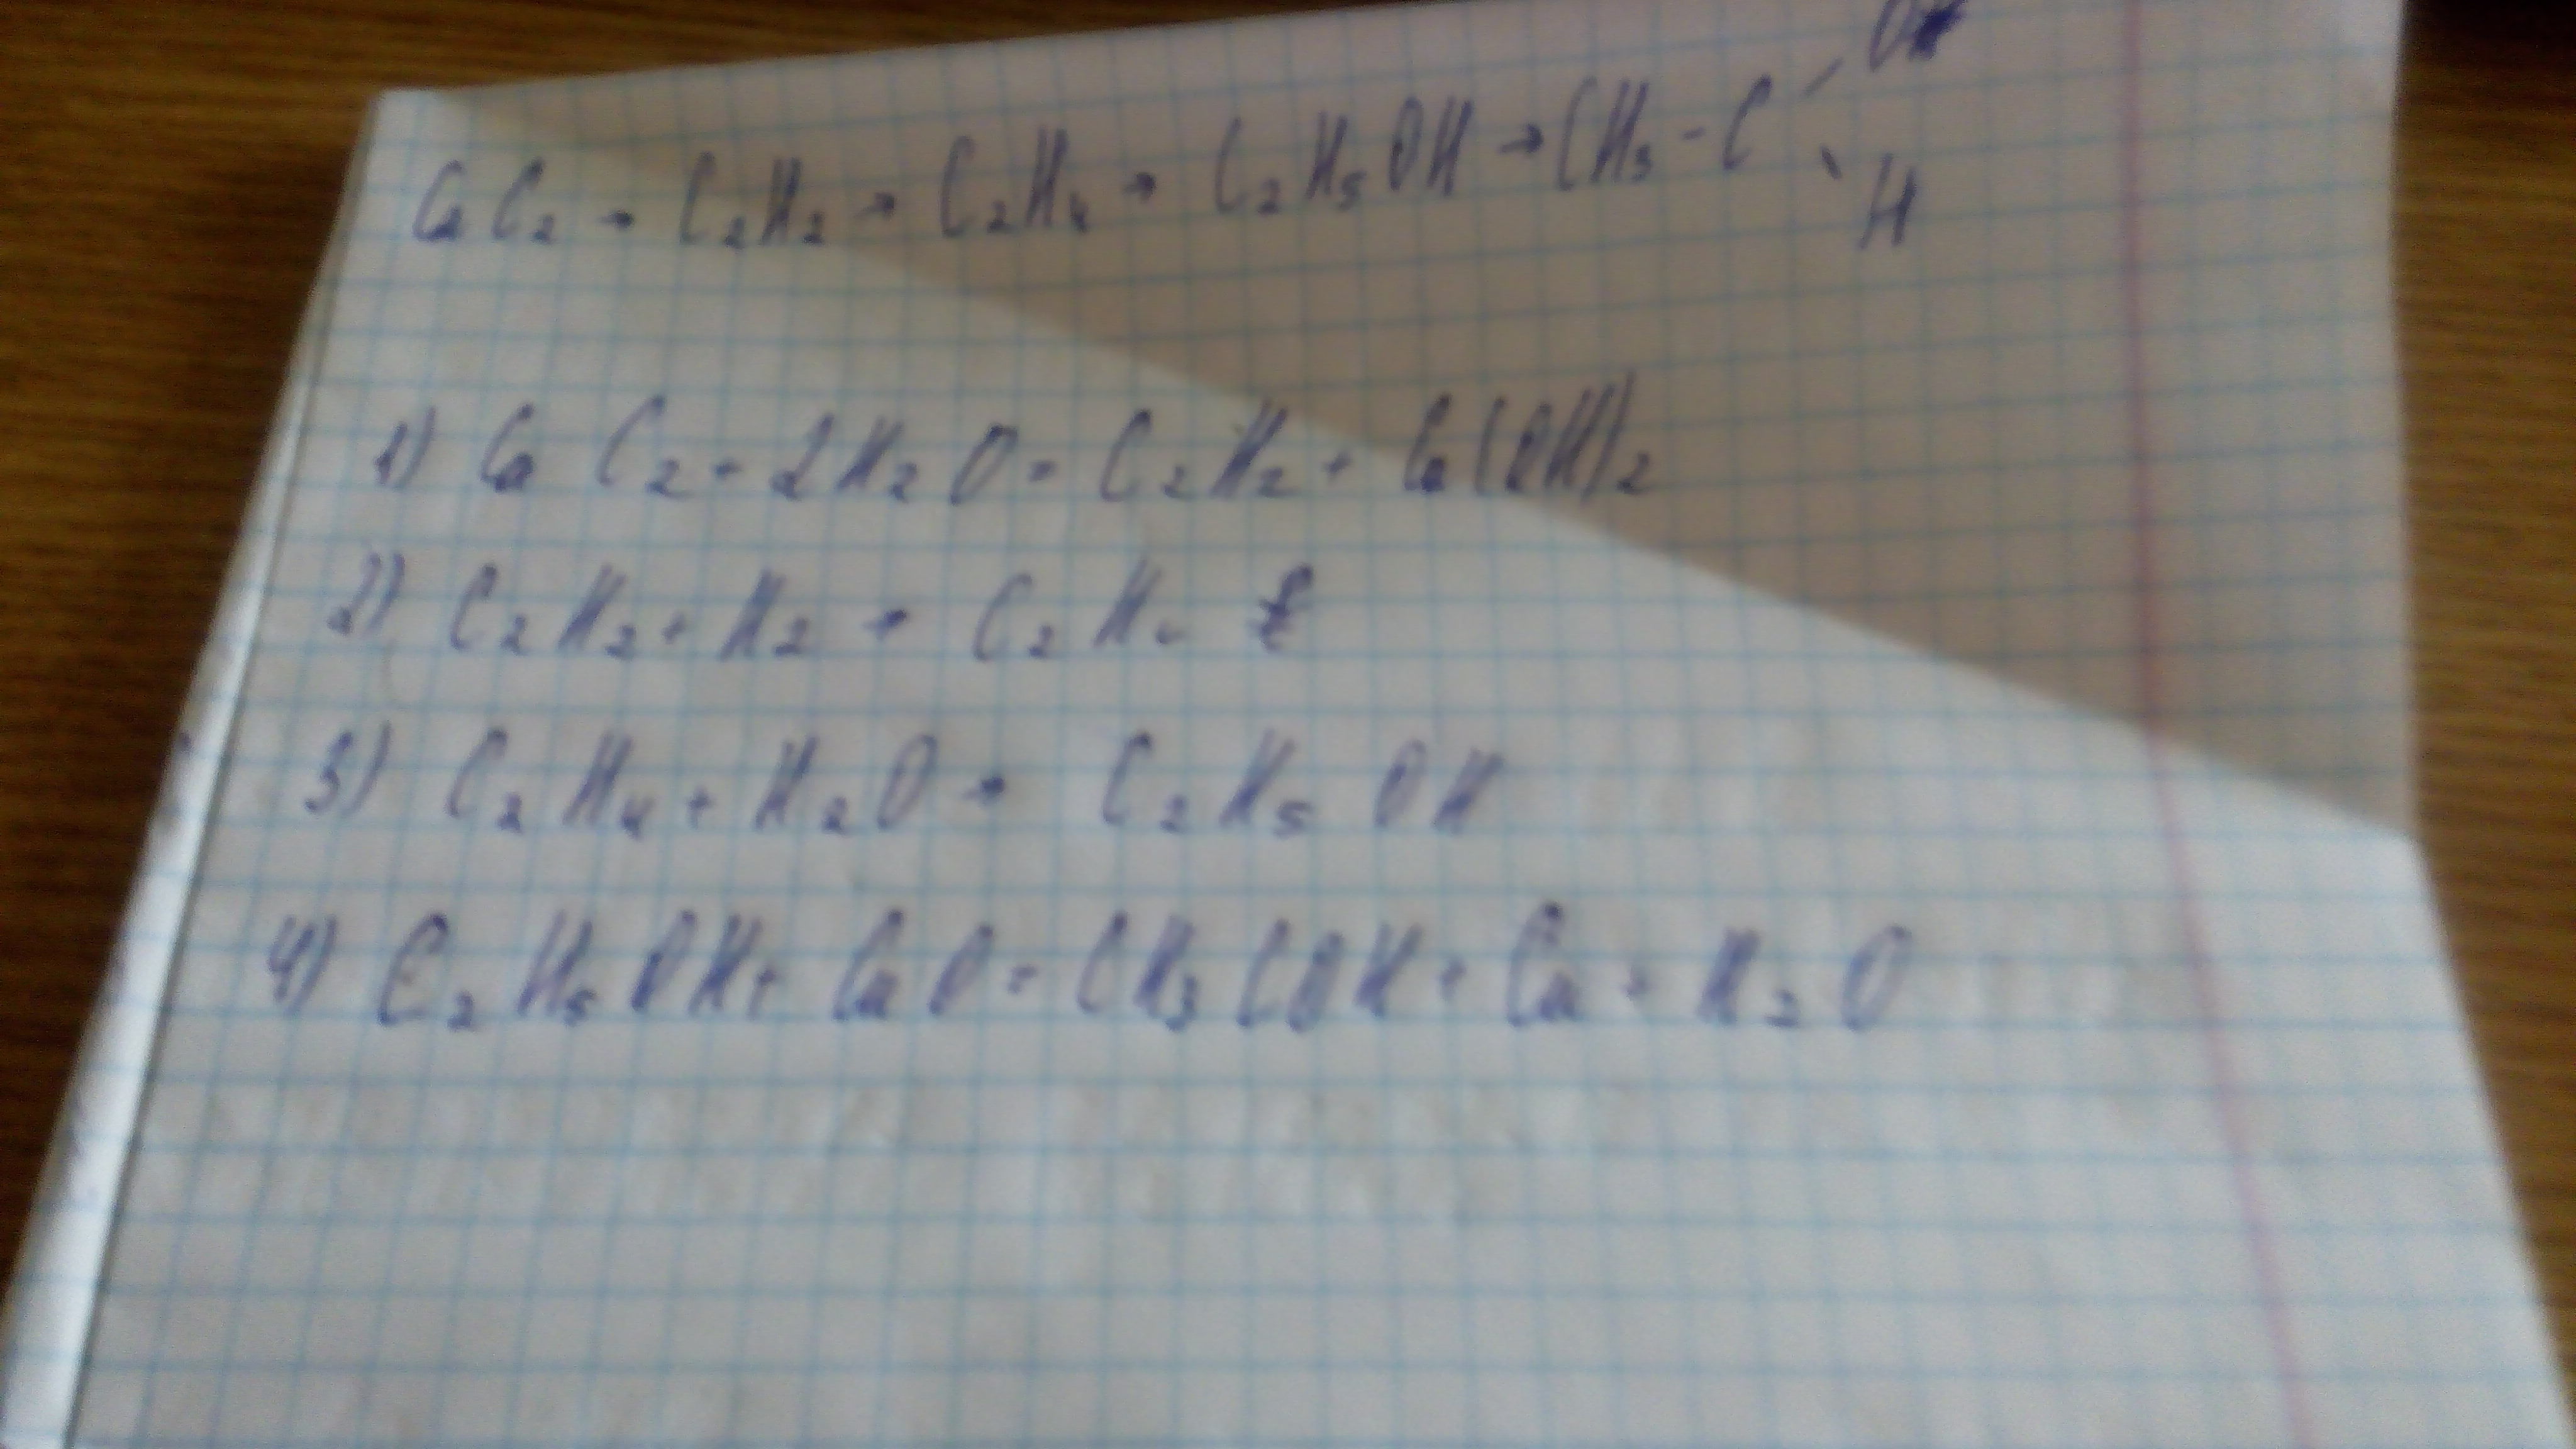 CaC₂ → C₂H₂ → C₂H₄ → C₂H₅OH → CH₃-C
H
1) CaC₂ + 2H₂O = C₂H₂ + Ca(OH)₂
2) C₂H₂ + H₂ → C₂H₄
3) C₂H₄ + H₂O → C₂H₅OH
4) C₂H₅OH + CuO = CH₃COH + Cu + H₂O